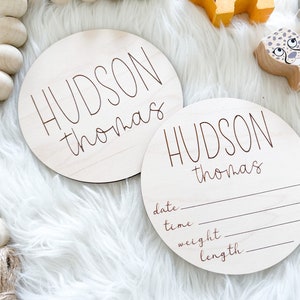 HUDSON
thomas
HUDSON
thomas
date
time
weight
length